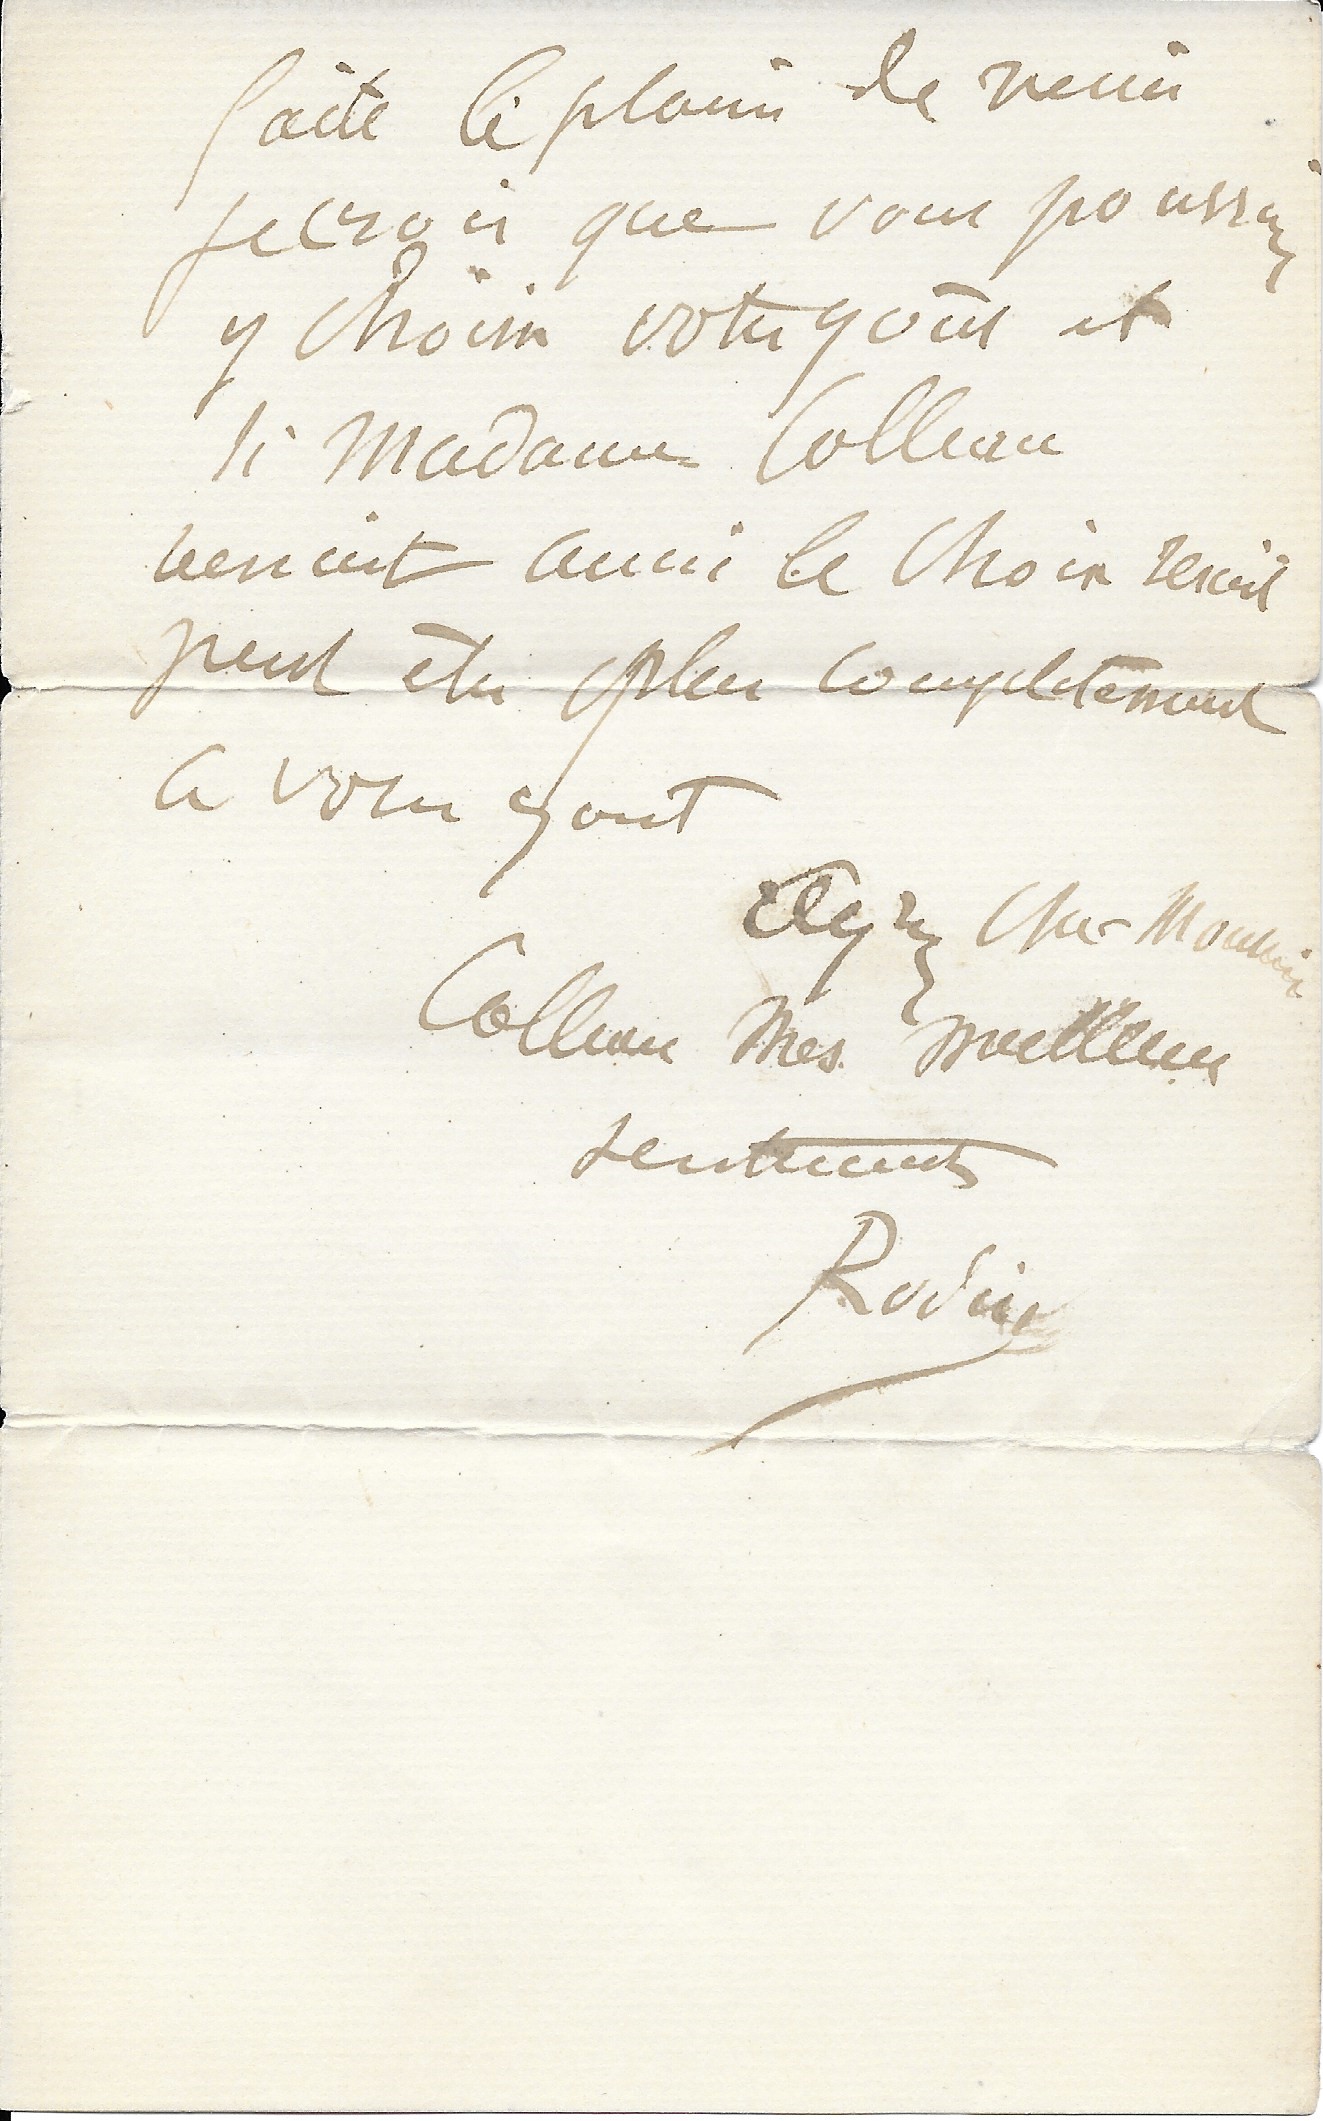 faite le plaisir de venir
je crois que vous poussiez
y choisir votre goût et
si Madame Colleau
venait aussi le choix serait
peut être plus completement
a votre gout
Agréez cher Monsieur
Colleau mes meilleurs
sentiments
Rodin